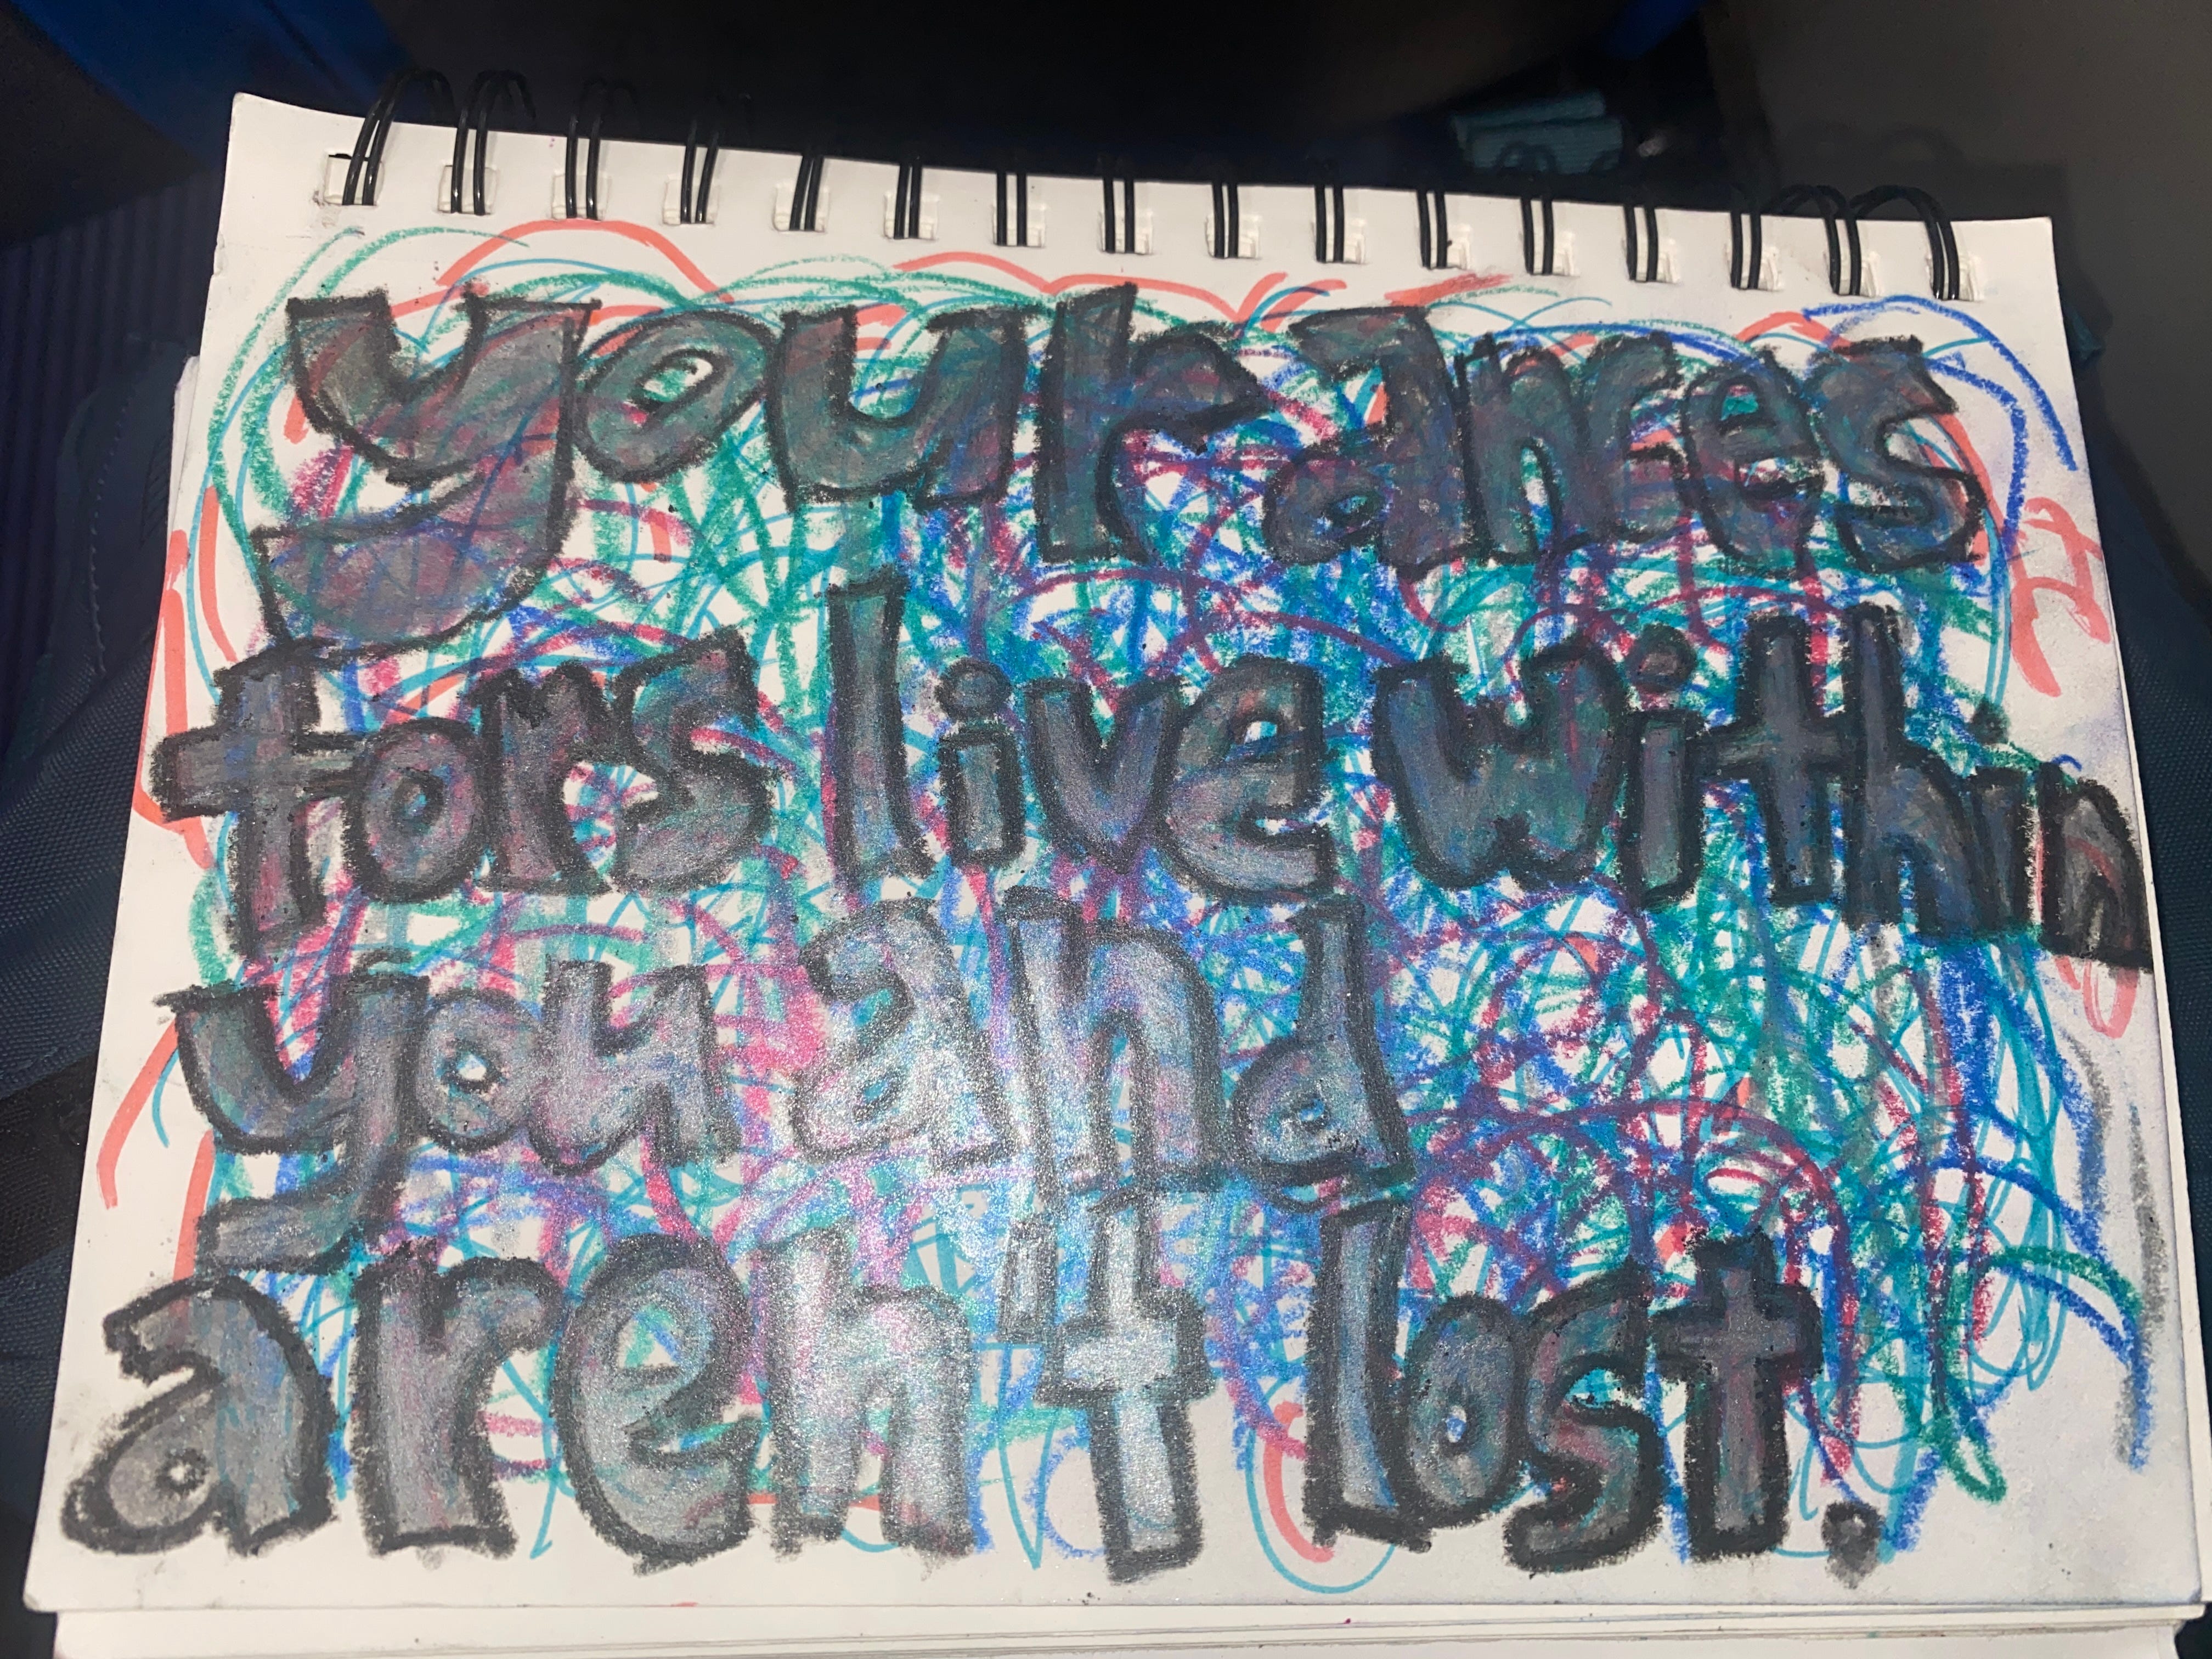 your ances
tors live within
you and
aren't lost.